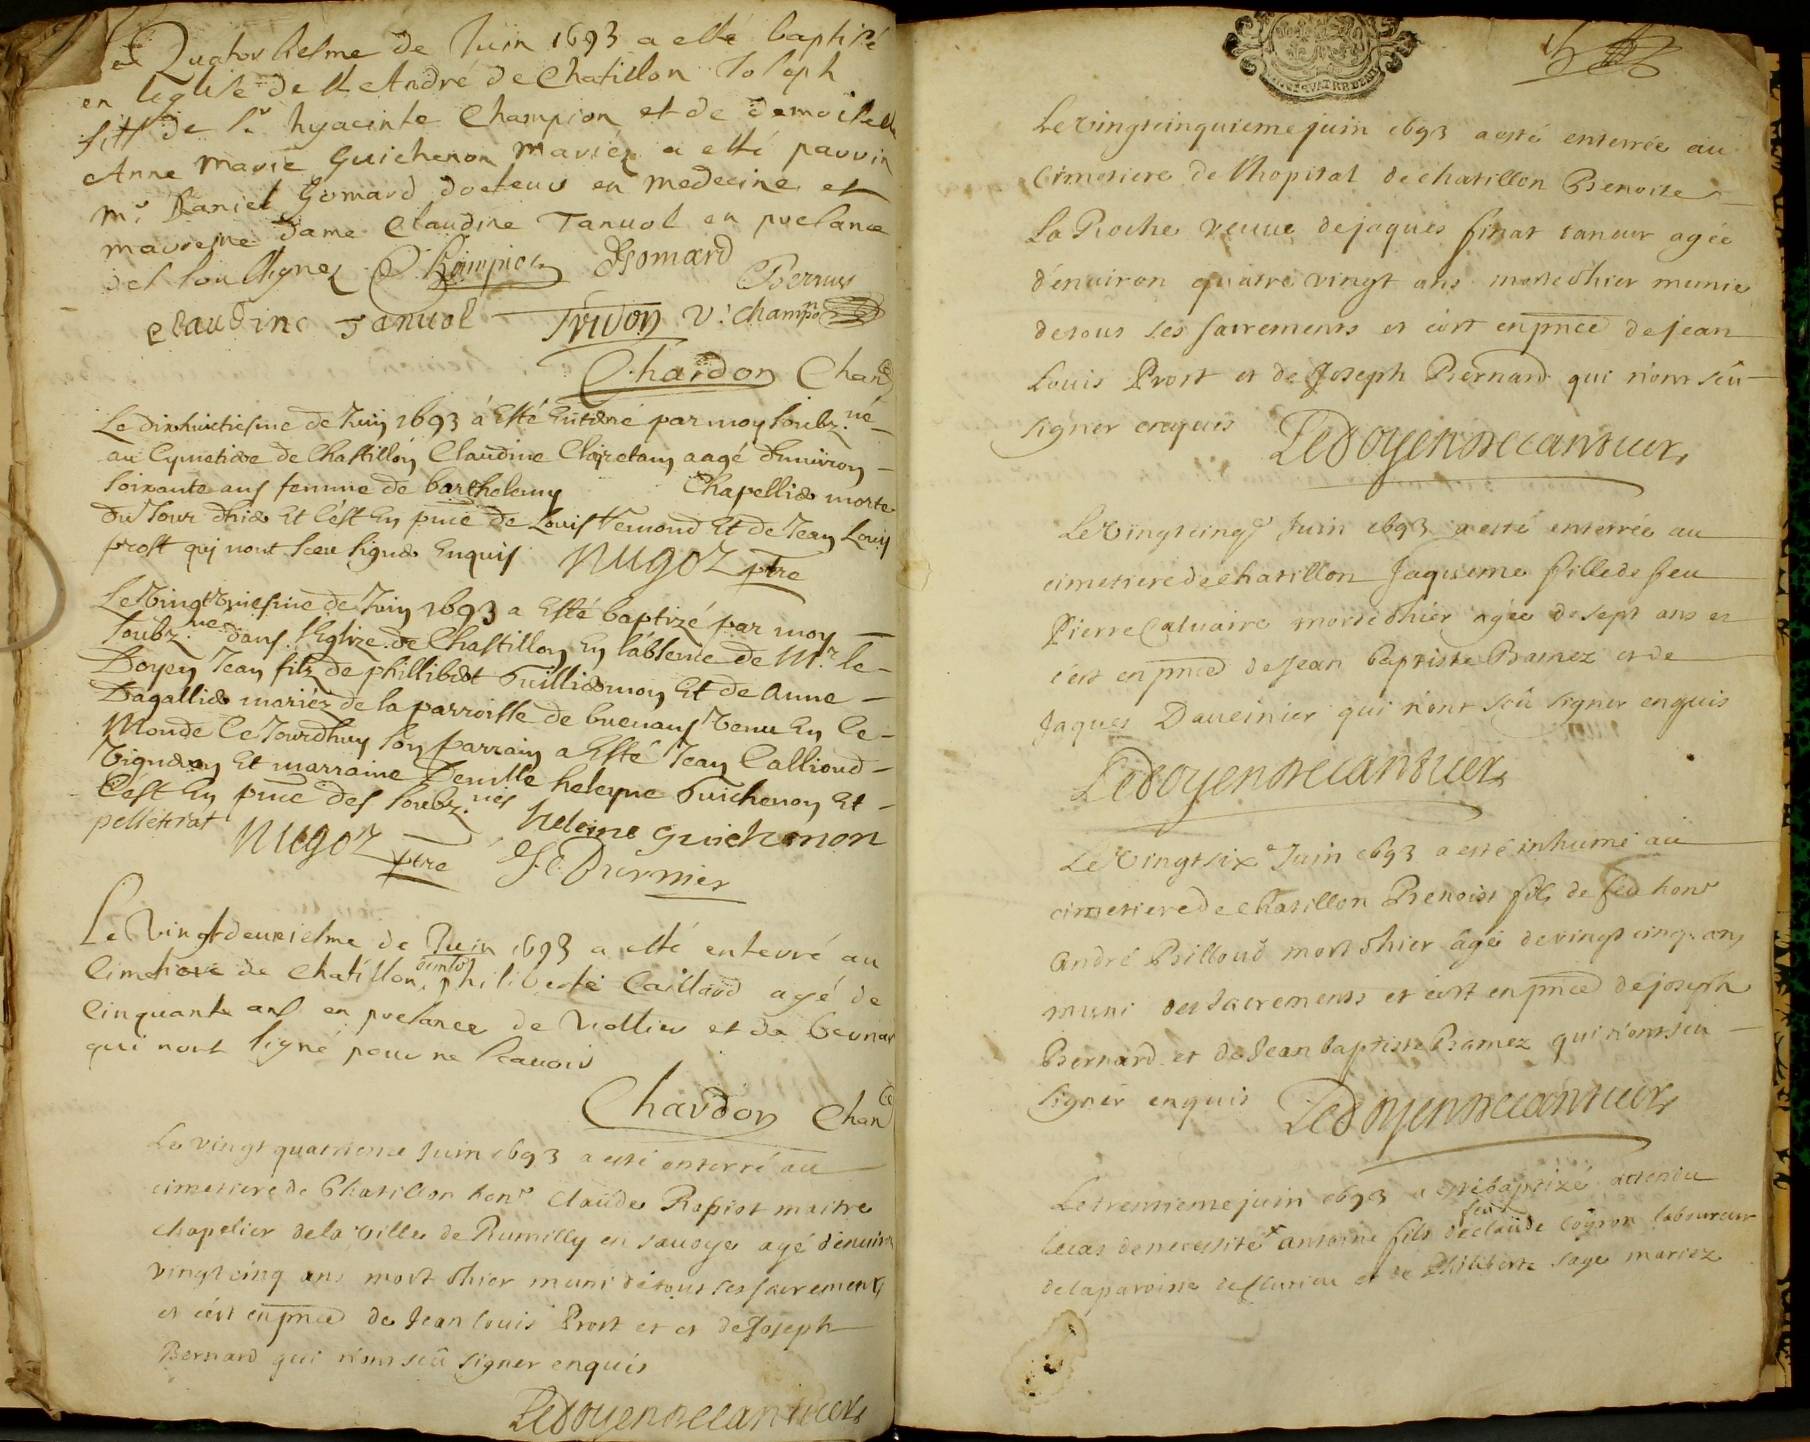 Le Quatorsiesme de Juin 1693 a esté baptisé
en leglise de st Andre de Chatillon Joseph
fils de sr hyacinte Champion et de demoiselle
Anne Marie Guichenon Mariez a esté parrin
mr Daniel Gomard docteur en medecine et
marreine dame Claudine Tanuol en presance
des soussignez Champion Gomard
Bernus
Claudine Tanuol Trivon V. champion
Chardon Chan
Le dixhuictiesme de Juin 1693 à Esté Enterré par moy soubz.né
au Cymetiere de Chastillon Claudine Clairetain aagé d'environ
soixante ans femme de barthelemy Chapellier morte
du Jour d'hier Et c'est En pnce de Louis Vemond Et de Jean Louis
prost qui n'ont sceu signer Enquis Nugoz ptre
Le Vingt Vniesme de Juin 1693 a Esté baptizé par moy
soubz.né dans l'Eglize de Chastillon En l'absence de Mr. le
Doyen Jean filz de phillibert Guilliermon Et de Anne
Dagallier mariéz de la parroisse de buenans Venu En ce
Monde ce Jourdhuy son parrain a Esté Jean Callioud
Vigneron Et marraine Demlle heleyne Guichenon Et
C'est En pnce des soubz.nés heleine guichenon
pelleterat Nugoz ptre
Le Vingtdeuxiesme de Juin 1693 a esté enterré au
Cimetiere de Chatillon philiberte Caillard agé de
Cinquante ans en presance de Viollier et de bernar
qui n'ont signé pour ne scavoir
Chardon Chan
Le vingt quatrieme Juin 1693 a esté enterré au
cimetiere de Chatillon honr Claude Rapiot maitre
chapelier de la ville de Rumilly en savoye agé d'enuiron
vingt cinq ans mort d'hier muni de tous ses sacrements
et c'est en pnce de Jean Louis Prost et et de Joseph
Bernard qui n'ont seû signer enquis
Ledoyendecanuiers
Le vingtcinquieme juin 1693 a esté enterrée au
cimetiere de l'hopital de chatillon Benoite
La Roche veuve de jaques finat taneur agée
d'enuiron quatre vingt ans morte d'hier munie
de tous ses sacrements et c'est en pnce de jean
Louis Prost et de Joseph Bernard qui n'ont seû
signer enquis Ledoyendecanuiers
Le Vingtcinqe Juin 1693 a esté enterrée au
cimetiere de chatillon Jaqueme fille de feu
Pierre Caluaire morte d'hier agée de sept ans et
c'est en pnce de Jean baptiste Bamez et de
Jaques Daveinier qui n'ont seû signer enquis
Ledoyendecanuiers
Le Vingtsixe Juin 1693 a esté inhumé au
cimetiere de chatillon Benoist fils de feu honr
André Billoud mort d'hier âgé de vingt cinq ans
muni des sacrements et c'est en pnce de joseph
Bernard et de Jean baptiste Bamez qui n'ont seu
signer enquis Ledoyendecanuiers
Le trentieme juin 1693 a esté baptizé attendu
le cas de necessité antoine fils de feu claude Coÿron laboureur
de la paroisse de flurieu et de Philiberte Sage mariez